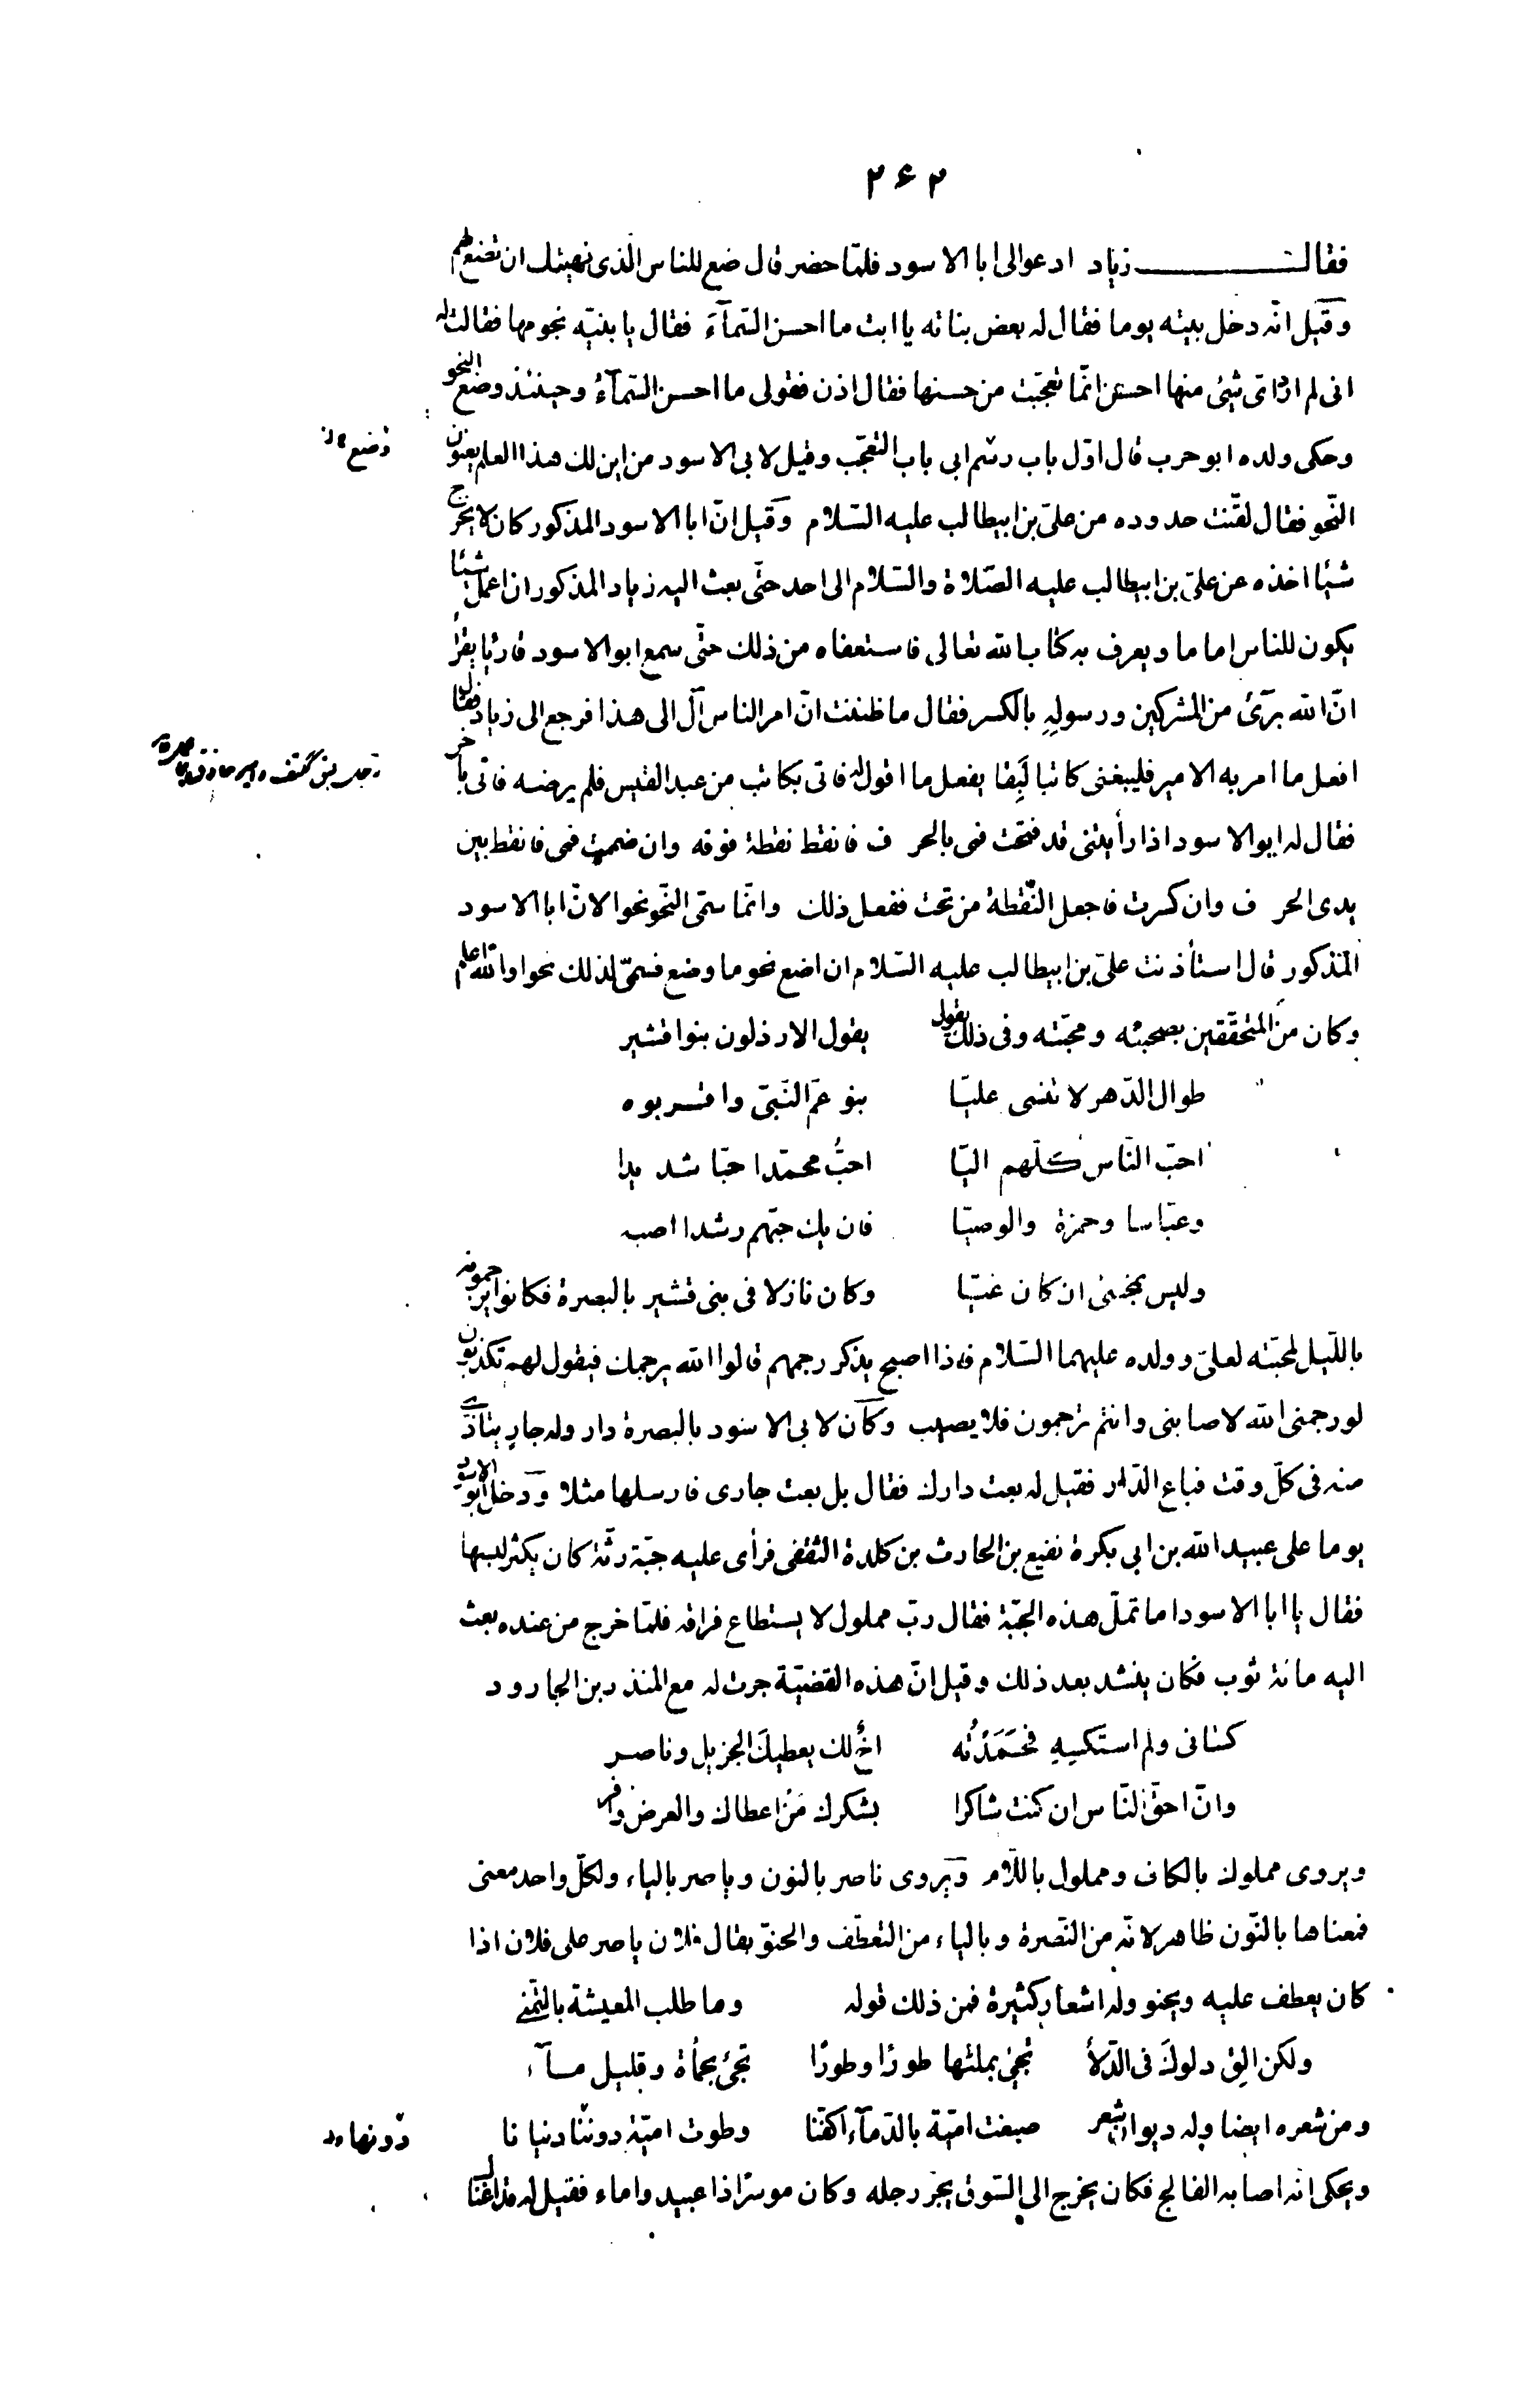 ۲۶۲
فقال زياد ادعوا لى ابا الاسود فلمّا حضر قال ضع للناس الّذى نهيتك ان تضع لهم
وقيل انّه دخل بيته يوما فقال له بعض بناته يا ابت ما احسن السّمآءَ فقال يا بنيّه نجومها فقالت له
انى لم ارد اىّ شئ منها احسن انّما تعجّبت من حسنها فقال اذن فقولى ما احسن السّمآءَ وحينئذ وضع النحو
وحكى ولده ابو حرب قال اوّل باب رسم ابى باب التعجّب وقيل لابى الاسود من اين لك هذا العلم يعنون
وضع
النّحو فقال لقّنت حدوده من علىّ بن ابيطالب عليه السّلام وقيل انّ ابا الاسود المذكور كان لا يخرج
شيئا اخذه عن علىّ بن ابيطالب عليه الصّلاة والسّلام الى احد حتّى بعث اليه زياد المذكور ان اعمل شيئا
يكون للناس اماما ويعرف به كتاب الله تعالى فاستعفاه من ذلك حتّى سمع ابو الاسود قارئا يقرأ
انّ الله برىٓء من المشركين ورسولِهِ بالكسر فقال ما ظننت انّ امر الناس آل الى هذا فرجع الى زياد فقال
افعل ما امر به الامير فليبغنى كاتبا لَبِقا يفعل ما اقول له فاتى بكاتب من عبد القيس فلم يرضه فاتى باخر
فقال له ابو الاسود اذا رأيتنى قد فتحت فمى بالحرف فانقط نقطة فوقه وان ضممت فمى فانقط بين
يدى الحرف وان كسرت فاجعل النّقطة من تحت ففعل ذلك وانّما سمّى النّحو نحوا لانّ ابا الاسود
المذكور قال استأذنت علىّ بن ابيطالب عليه السّلام ان اضع نحو ما وضع فسمّى لذلك نحوا والله اعلم
وكان من المتحقّقين بصحبته ومحبّته وفى ذلك يقول يقول الارذلون بنوا قشير
طوال الدّهر لا تنسى عليّا بنو عمّ النّبىّ واقربوه
احبّ النّاس كلّهم اليّا احبُّ محمّدا حبّا شديدا
وعبّاسا وحمزة والوصيّا فان يك حبّهم رشدا اصبه
وليس بمخطئ ان كان غيّا وكان نازلا فى بنى قشير بالبصرة فكانوا يرجمونه
باللّيل لمحبّته لعلىّ وولده عليهما السّلام فاذا اصبح يذكر رجمهم قالوا الله يرجمك فيقول لهم تكذبون
لو رجمنى الله لاصابنى وانتم ترجمون فلا يصيب وكان لابى الاسود بالبصرة دار وله جار يتأذّى
منه فى كلّ وقت فباع الدّار فقيل له بعت دارك فقال بل بعت جارى فارسلها مثلا ودخل ابو الاسود
يوما على عبيد الله بن ابى بكرة نفيع بن الحارث بن كلدة الثقفى فرأى عليه جبّة رثّة كان يكثر لبسها
فقال يا ابا الاسود اما تملّ هذه الجبّة فقال ربّ مملول لا يستطاع فراقه فلمّا خرج من عنده بعث
اليه مائة ثوب فكان ينشد بعد ذلك وقيل انّ هذه القضيّة جرت له مع المنذر بن الجارود
كسانى ولم استكسِهِ فحَمَدْتُه اخٌ لك يعطيكَ الجزيل وناصر
وانّ احقّ النّاس ان كنت شاكرا بشكرك مَنْ اعطاك والعرض وافر
ويروى مملوك بالكاف ومملول باللّام ويروى ناصر بالنون وياصر بالياء ولكلّ واحد معنى
فمعناها بالنّون ظاهر لانّه من النّصرة وبالياء من التعطّف والحنوّ يقال فلان ياصر على فلان اذا
كان يعطف عليه ويحنو وله اشعار كثيرة فمن ذلك قوله وما طلب المعيشة بالتمنّى
ولكن الق دلوكَ فى الدّلآ تجئ بملئها طورًا وطورًا تجئ بحمأة وقليل مآء
ومن شعره ايضا وله ديوان شعر صبغت اميّة بالدّمآء اكفّنا وطوت اميّة دوننا دنيانا
دونها
ويحكى انّه اصابه الفالج فكان يخرج الى السّوق يجرّ رجله وكان موسرًا ذا عبيد واماء فقيل له قد اغناك